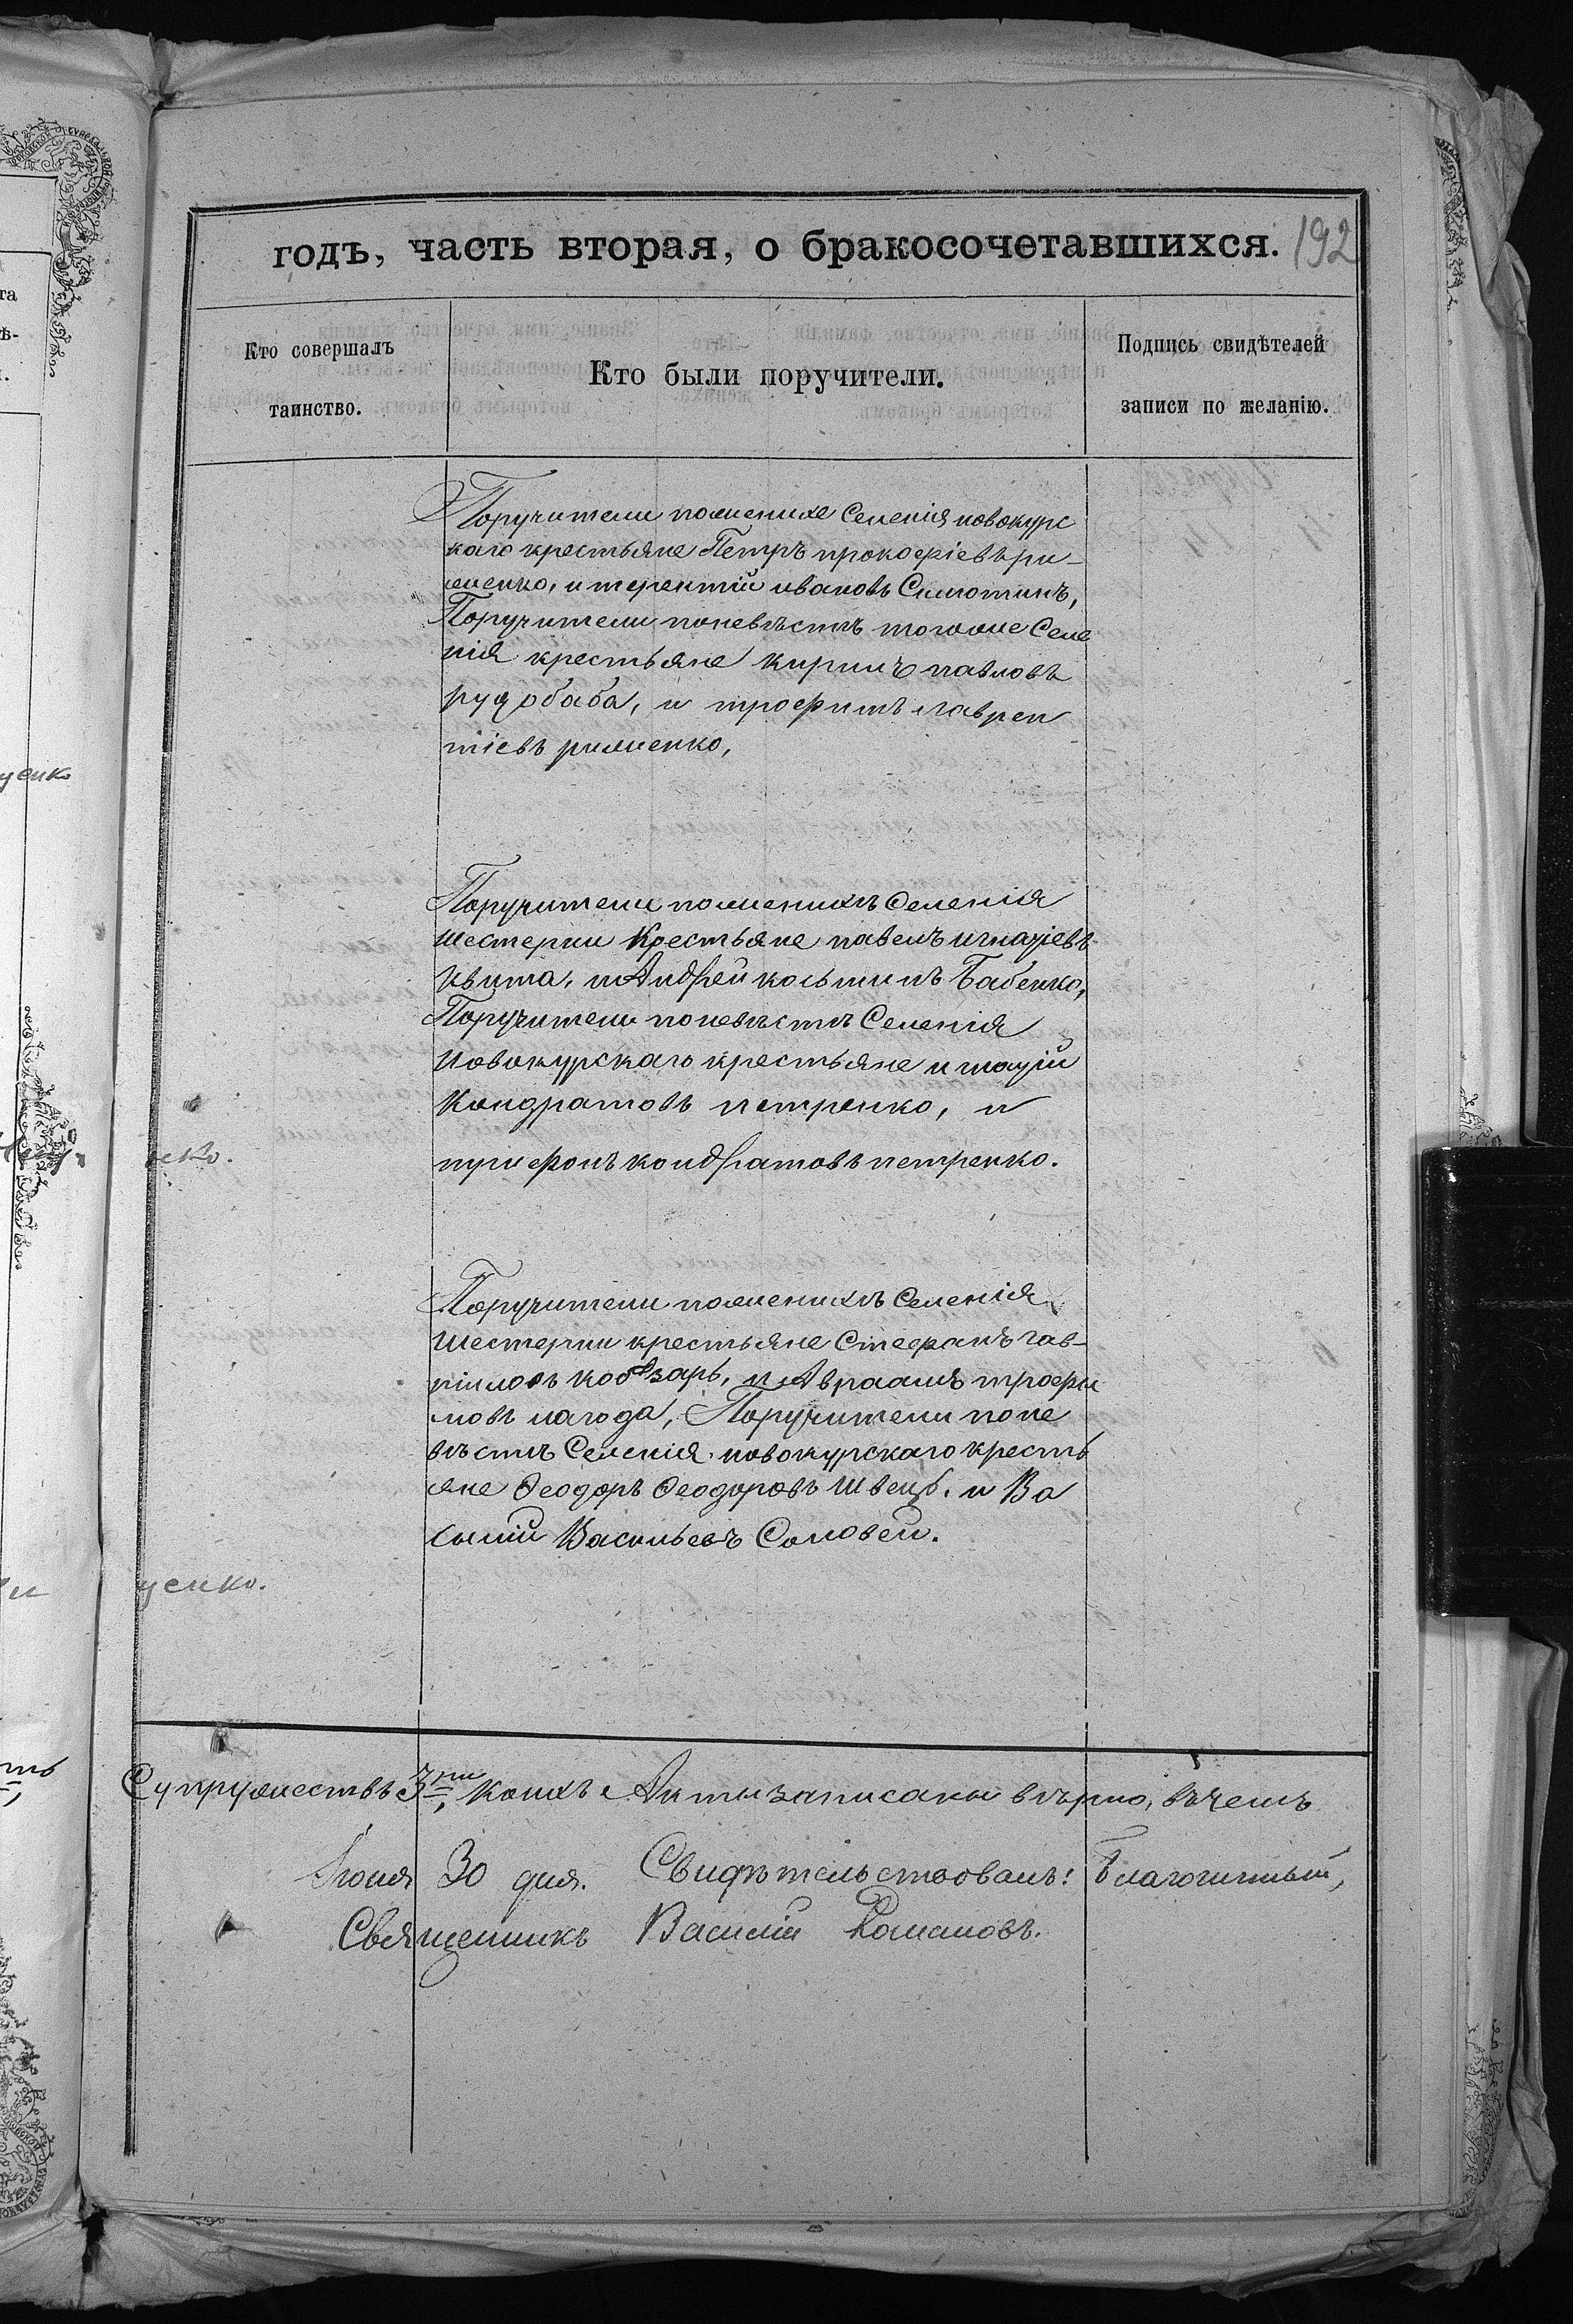 годъ, часть вторая, о бракосочетавшихся. 192
Кто совершалъ
таинство.
Кто были поручители.
Подпись свидѣтелей
записи по желанію.
Поручители пожених Селенія новокурс
каго крестьяне Петръ прокофіевъ ри-
менко, и терентій ивановъ
Поручители поневѣстѣ тогоже Селе
нія крестьяне кирилъ павловъ
рудобаба, и трофимъ лаврен
тіевъ рименко,
Поручители поженихѣ Селенія
шестерни Крестьяне павелъ игнатіевъ
Квита, и Андрей косьминъ Бабенко,
Поручители поневѣстѣ Селенія
Новокурскаго крестьяне игнатій
Кондратовъ петренко, и
трифонъ кондратовъ петренко.
еко.
Поручители поженихѣ Селенія
шестерни крестьяне Стефанъ гав-
ріиловъ кобзарь, и Авраамъ трофи
мовъ нагода, Поручители поне
вѣстѣ Селенія новокурскаго кресть
яне Ѳеодоръ Ѳеодоровъ Швецъ. и Ва
силій Васильевъ Соловей.
ценко.
Супружествъ 3ти, коихъ Акты записаны вѣрно, въ чемъ
Іюня 30 дня. Свидѣтельствовалъ: Благочинный,
Священникъ Василій Романовъ.